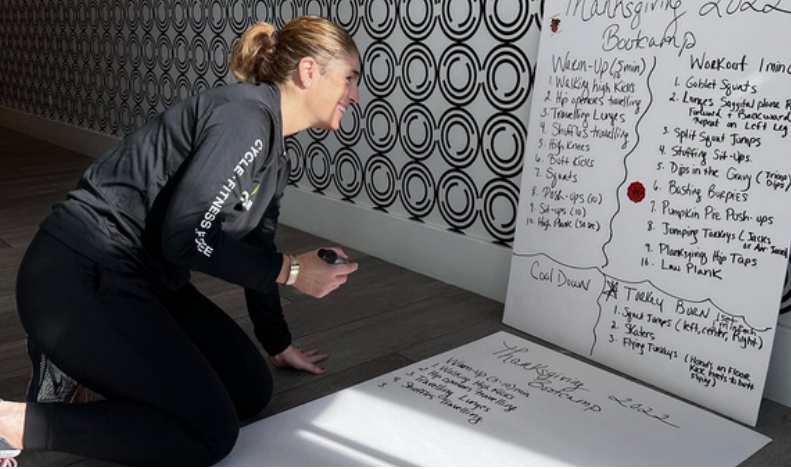 Thanksgiving 2022
Bootcamp
Warm-Up (5min)
1. Walking high Kicks
2. Hip openers travelling
3. Travelling Lunges
4. Shuffles-travelling
5. High Knees
6. Butt Kicks
7. Squats
8. Push-ups (10)
9. Sit-ups (10)
10. High Plank (30 sec)
Cool Down
Workout 1min
1. Goblet Squats
2. Lunges Saggital plane R
Forward + Backward
repeat on Left leg
3. Split Squat Jumps
4. Stuffing Sit-Ups
5. Dips in the Gravy (Tricep
Dips)
6. Basting Burpies
7. Pumpkin Pie Push-ups
8. Jumping Turkeys (Jacks
or Air Jacks)
9. Planksgiving Hip Taps
10. Low Plank
Turkey Burn 1 Set
1. Squat Jumps (left, center, Right)
2. Skaters
3. Flying Turkeys (Hands on Floor
Kick heels to butt
Flying)
CYCLE·FITNESS
Thanksgiving 2022
Bootcamp
Warm-up
1. Walking High Kicks
2. Hip openers travelling
3. Travelling Lunges
4. Shuffles Travelling
5.